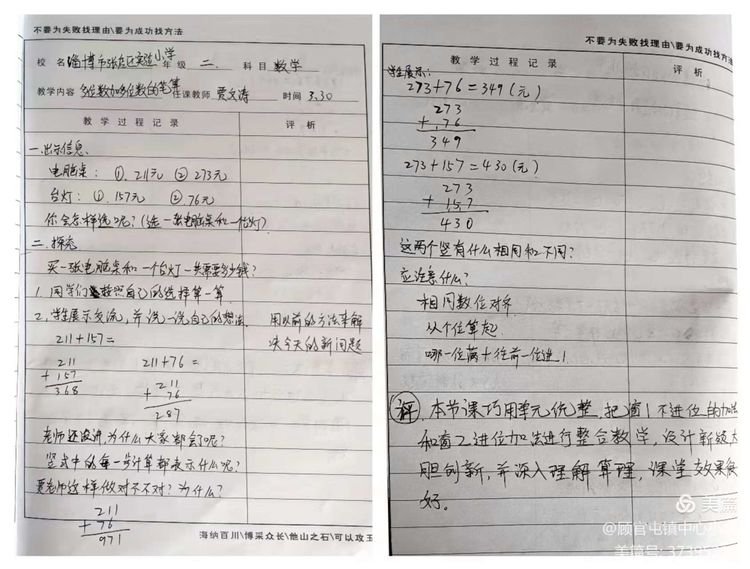 不要为失败找理由/要为成功找方法
校 名 淄博市张店区实验小学 年 级 二. 科 目 数学
教学内容 多位数加多位数的笔算 任课教师 贾文涛 时间 3.30
教 学 过 程 记 录 评 析
一.出示信息.
电脑桌: ①.211元 ②.273元
台灯: ①.157元 ②.76元
你会怎样选呢?(选一张电脑桌和一台灯)
二.探究
买一张电脑桌和一个台灯一共需要多少钱?
1.同学们按照自己的选择算一算.
2.学生展示交流,并说一说自己的想法. 用以前的方法来解
211+157= 决今天的新问题
211 211+76=
+157 211
368 + 76
287
老师还没讲,为什么大家都会了呢?
竖式中的每一步计算都表示什么呢?
贾老师这样做对不对?为什么?
211
+ 76
971
海纳百川/博采众长/他山之石/可以攻玉
不要为失败找理由/要为成功找方法
教 学 过 程 记 录 评 析
学生展示:
273+76=349(元)
273
+ 76
349
273+157=430(元)
273
+157
430
这两个竖有什么相同和不同?
应注意什么?
相同数位对齐
从个位算起
哪一位满十往前一位进1
评 本节课巧用单元统整,把窗1不进位的加法
和窗2进位加法进行整合教学,设计新颖大
胆创新,并深入理解算理,课堂效果很
好。
美篇
@顾官屯镇中心小
美篇号:37395